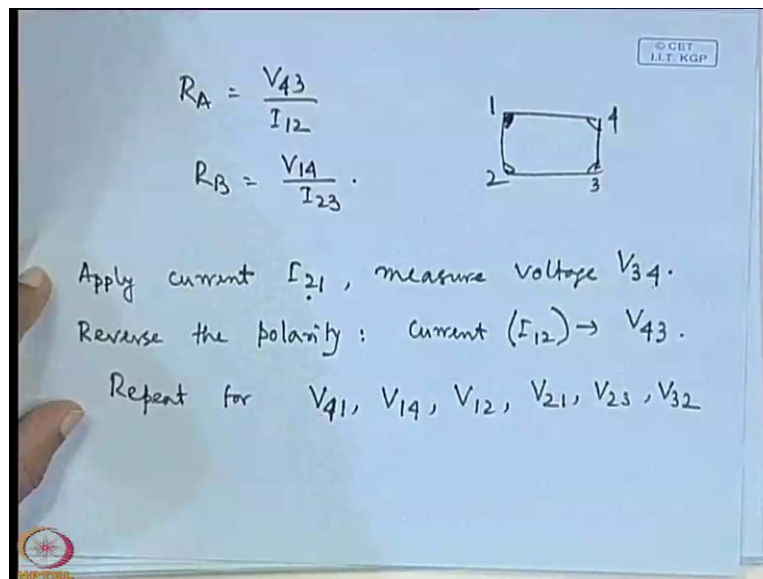 © CET
I.I.T. KGP
R_A = V_43 / I_12
1 4
2 3
R_B = V_14 / I_23 .
Apply current I_21 , measure voltage V_34 .
Reverse the polarity : current (I_12) → V_43 .
Repeat for V_41, V_14, V_12, V_21, V_23 , V_32
NPTEL